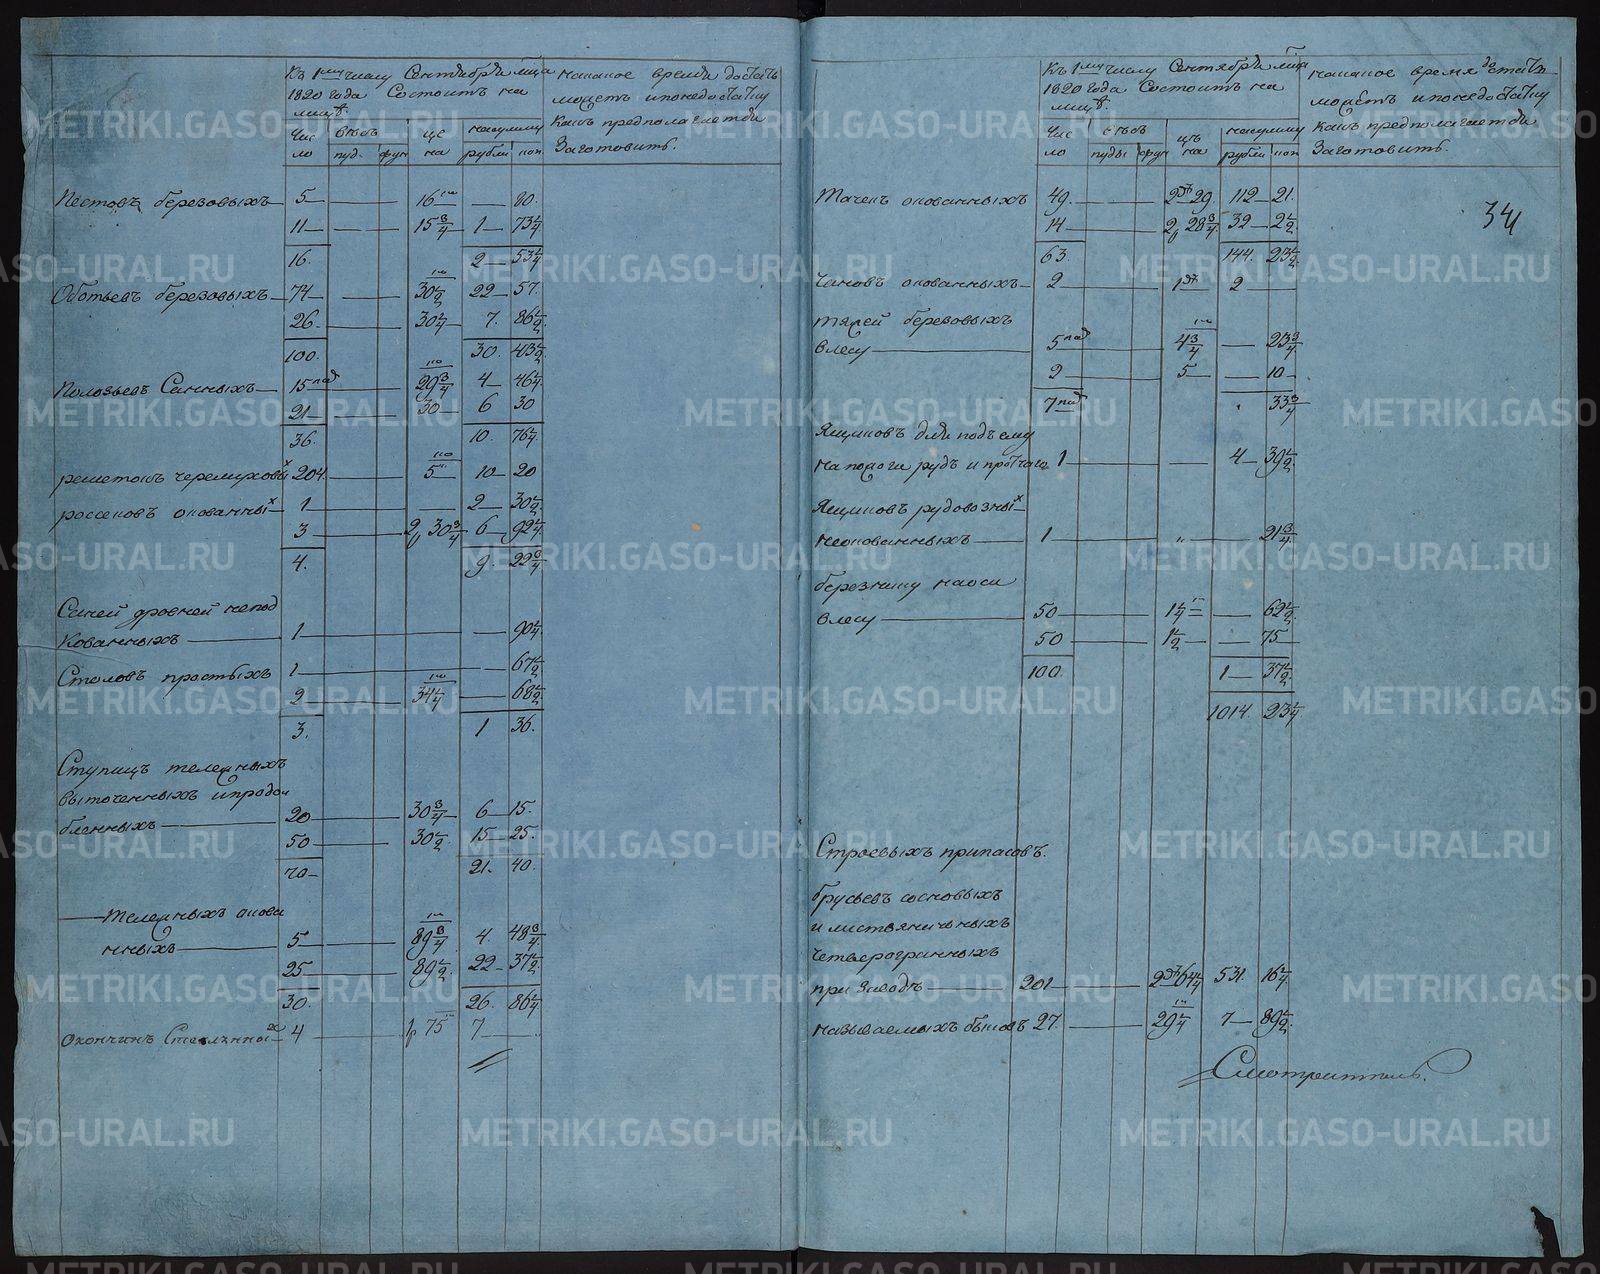 Къ 1му числу Сентября мца
1820 года Состоитъ на
лицо
Чис
ло
вѣсъ
пуд. фун
це
на
насумму
рубли коп.
накакое время достать
можетъ ипонедостатку
какъ предполагается
Заготовить.
Пестовъ березовыхъ 5 16 80.
11 15 3/4 1 73 1/4
16. 2 53 1/4
Оботьевъ березовыхъ 74 30 1/2 22 57.
26. 30 1/4 7. 86 1/2
100. 30. 43 1/2
Полозьевъ Санныхъ 15 пар 29 3/4 4 46 1/4
21 30 6 30
36. 10. 76 1/4
решетокъ черемуховых 204. 5 10 20
россековъ окованных 1 2 30 1/2
3 2р 30 3/4 6 92 1/4
4. 9. 22 3/4
Саней дровней непод
Кованныхъ 1 90 1/4
Столовъ простыхъ 1 67 1/2
2 34 1/4 68 1/2
3. 1 36.
Ступицъ тележныхъ
выточенныхъ ипродол
бленныхъ 20 30 3/4 6 15.
50 30 1/2 15 25.
70 21. 40.
тележныхъ окова
нныхъ 5 89 3/4 4. 48 3/4
25 89 1/2 22 37 1/2
30. 26. 86 1/4
Окончинъ Стеклянных 4 1р 75 7
Къ 1му числу Сентября мца
1820 года Состоитъ на
лицо
Чис
ло
вѣсъ
пуды фун
цѣ
на
насумму
рубли коп
накакое время достать
можетъ ипонедостатку
какъ предполагается
Заготовить.
34
Тачекъ окованныхъ 49. 2р 29 112 21.
14 2р 28 3/4 32 2 1/2
63. 144. 23 1/2
Чановъ окованныхъ 2 1р 2
тяжей березовыхъ
влесу 5 пар 4 3/4 23 3/4
2 5 10
7 пар 33 3/4
Ящиковъ для подъему
напологи рудъ и протчаго 1 4 39 1/2
Ящиковъ рудовозных
неокованныхъ 1 21 3/4
березнику наоси
влесу 50 1 1/4 62 1/2
50 1 1/2 75
100. 1 37 1/2
1014. 23 1/4
Строевыхъ припасовъ.
брусьевъ сосновыхъ
и листвяничныхъ
четверогранныхъ
при Заводѣ 201 2р 64 1/4 531. 16 1/4
называемыхъ быковъ 27. 29 1/4 7 89 1/2
Смотритель.
METRIKI.GASO-URAL.RU